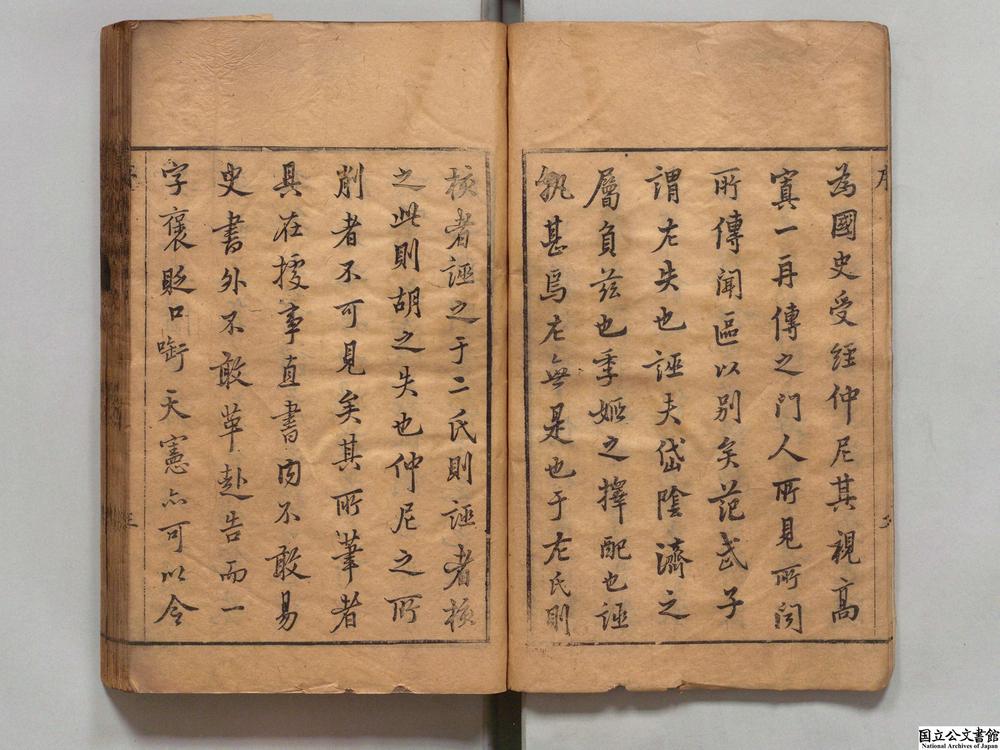 為國史受經仲尼其視高
寘一再傳之門人所見所聞
所傳聞區以別矣范武子
謂左失也誣夫岱陰濟之
屬負茲也季姬之擇配也誣
孰甚焉左無是也于左氏則
核者誣之于二氏則誣者核
之此則胡之失也仲尼之所
削者不可見矣其所筆者
具在據事直書內不敢易
史書外不敢革赴告而一
字褒貶口啣天憲亦可以令
序
国立公文書館
National Archives of Japan